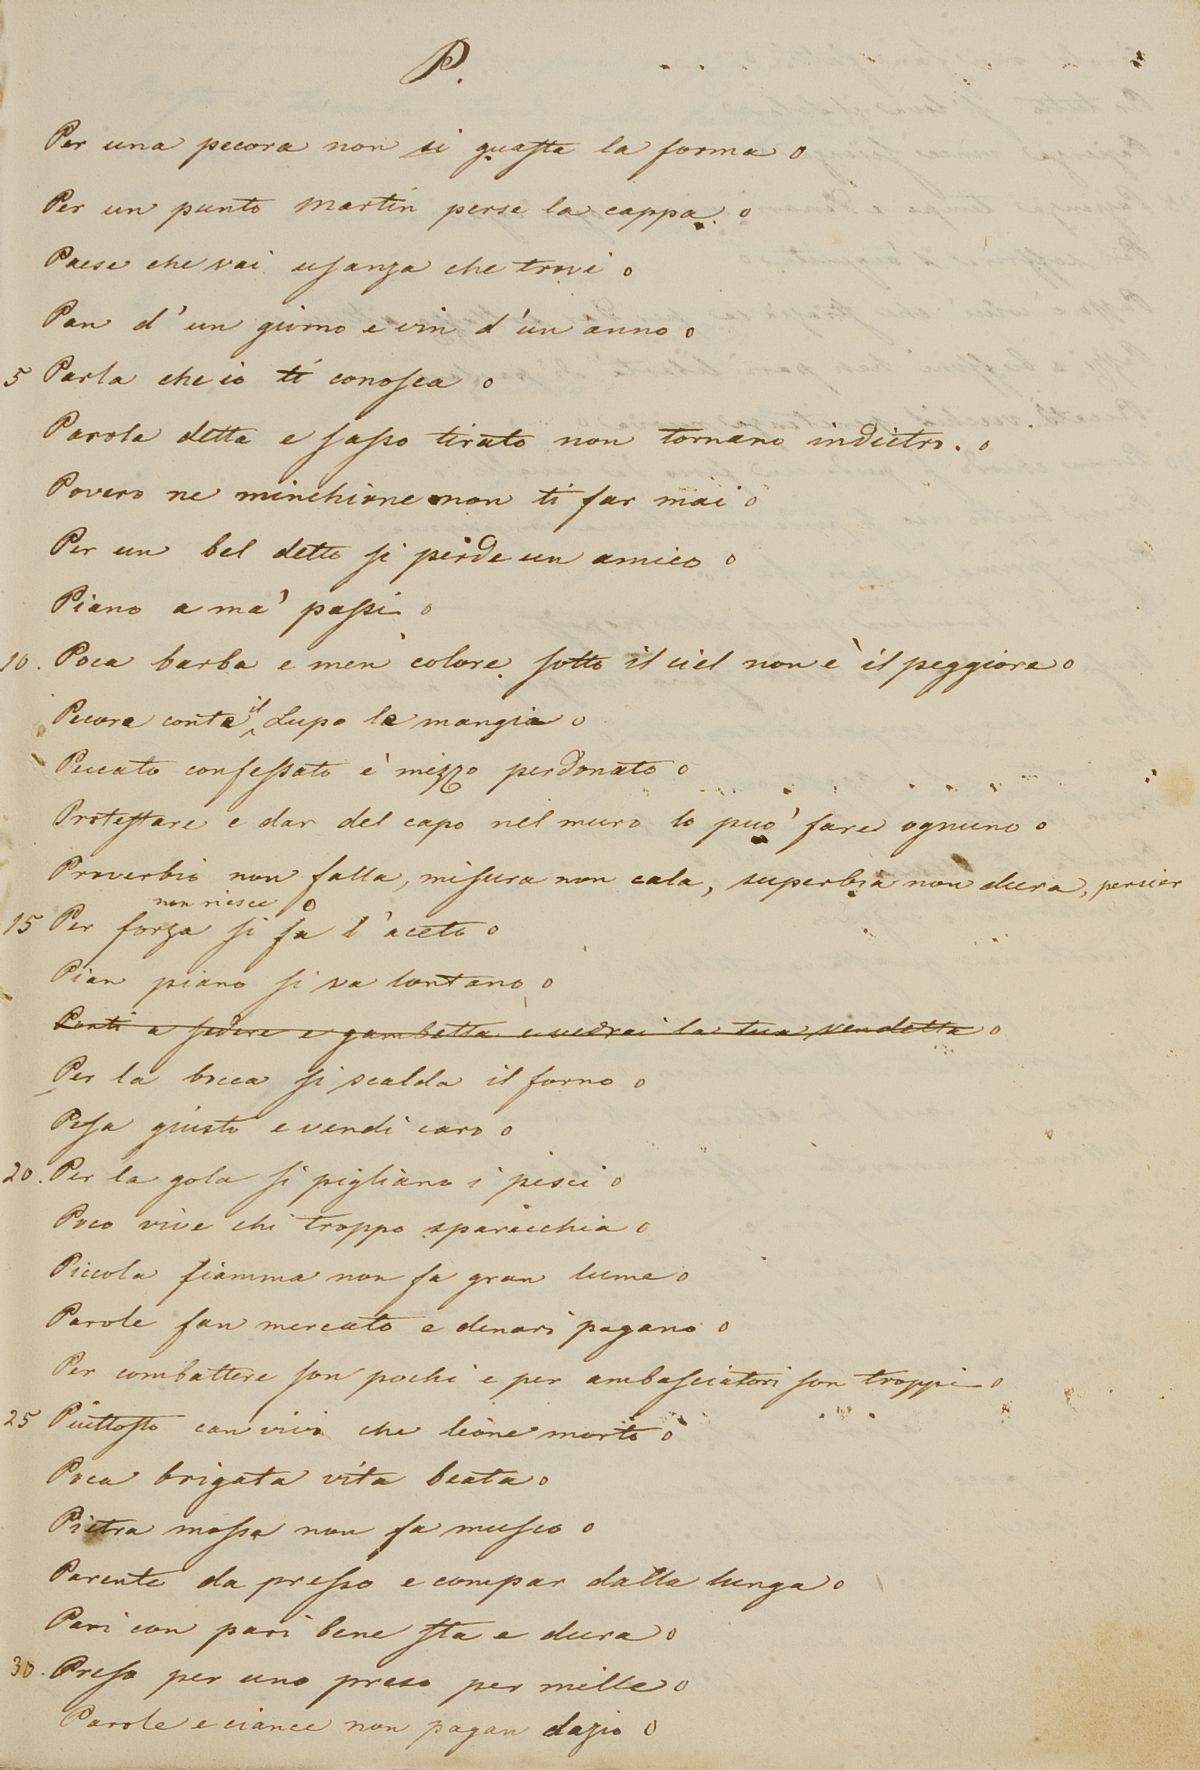 P.
Per una pecora non si guasta la forma o
Per un punto Martin perse la cappa. o
Paese che vai usanza che trovi o
Pan d'un giorno e vin d'un anno o
5 Parla che io ti conosca o
Parola detta e sasso tirato non tornano indietro. o
Povero ne minchione non ti far mai o
Per un bel detto si perde un amico o
Piano a ma' passi o
10. Poca barba e men colore sotto il ciel non è il peggiore o
Pecore conte il Lupo le mangia o
Peccato confessato è mezzo perdonato o
Protestare e dar del capo nel muro lo può fare ognuno o
Proverbio non falla, misura non cala, superbia non dura, pensier
non riesce o
15 Per forza si fa l'aceto o
Pian piano si va lontano o
Ponti a sedere e gambetta e vedrai la tua vendetta o
Per la bocca si scalda il forno o
Pesa giusto e vendi caro o
20. Per la gola si pigliano i pesci o
Poco vive chi troppo sparecchia o
Piccola fiamma non fa gran lume o
Parole fan mercato e denari pagano o
Per combattere son pochi e per ambasciatori son troppi o
25 Piuttosto can vivo che leone morto o
Poca brigata vita beata o
Pietra mossa non fa musco o
Parente da presso e compar dalla lunga o
Pari con pari bene sta e dura o
30. Preso per uno preso per mille o
Parole e ciance non pagan dazio o